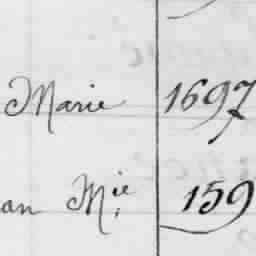 Marie 1697
an M.ie 159